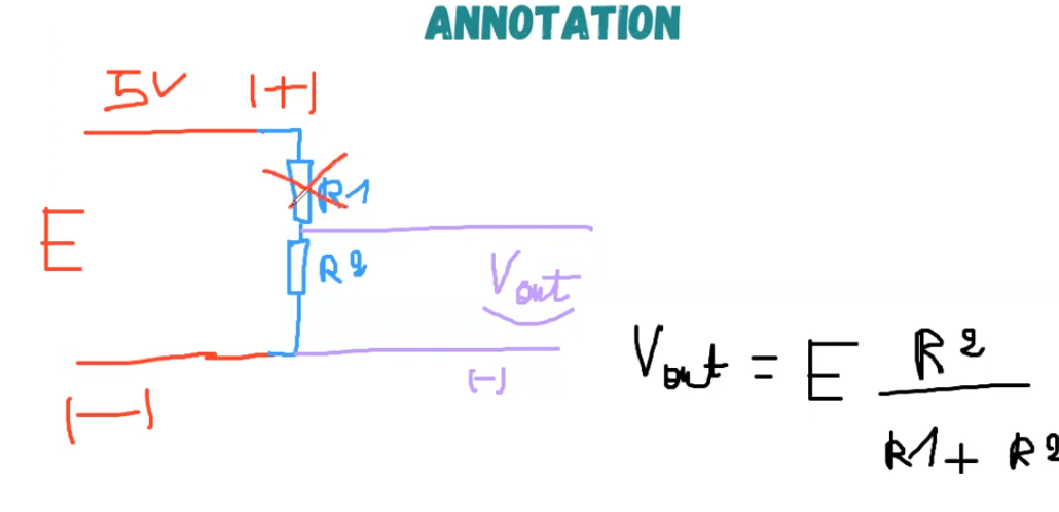 ANNOTATION
5V (+)
R1
E
R2
Vout
(-)
(-)
Vout = E R2
R1 + R2